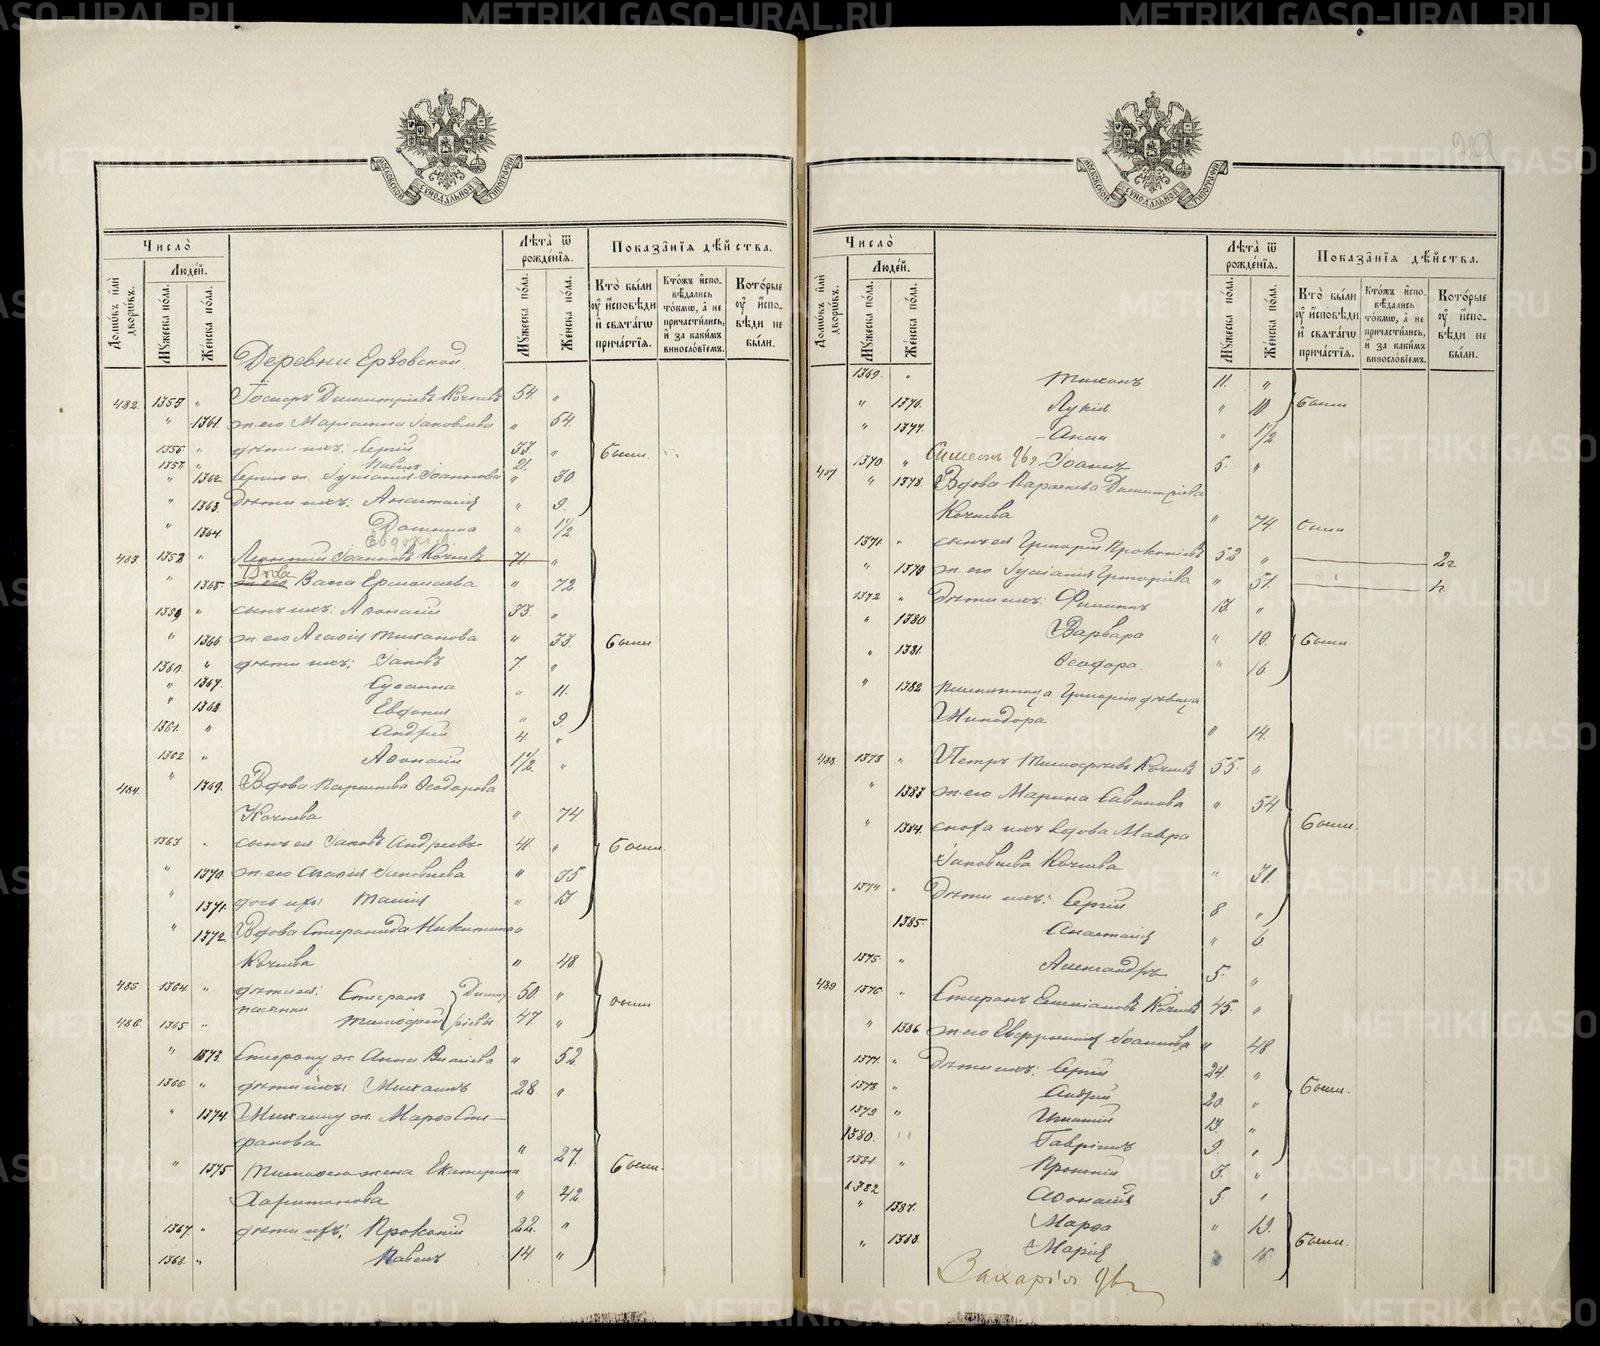 METRIKI.GASO-URAL.RU
МОСКОВСКОЙ СѴНОДАЛЬНОЙ ТИПОГРАФІИ
Число̀
Людей.
Домѡвъ илѝ дворѡвъ.
Мꙋжеска по́ла.
Же́нска по́ла.
Лѣта̀ ѿ рождéнїѧ.
Мꙋжеска по́ла.
Же́нска по́ла.
Показа̂нїѧ дѣ́йства.
Кто̀ бы́ли ᲂу҆ и҆сповѣди и҆ свѧта́гѡ прича́стїѧ.
Кто́жъ и҆спо-вѣ́дались то́кмѡ, а҆ не причасти́лись, и҆ за каки́мъ винослóвїемъ.
Кото́рые ᲂу҆ и҆спо-вѣди не бы́ли.
Деревни Ерзовской
482. 1355 " Димитріевъ Кочневъ 54. "
" 1361. ж. его Маріанна Іаковлева " 54.
1356 " дѣти ихъ: Сергій 33 "
1357 " Павелъ 21.
" 1362. Сергію ж. Іуліанія Іоаннова " 30
" 1363. Дѣти ихъ: Анастасія " 9.
" 1364. Домнина " 1 1/2
Евдокія
483. 1358 " Леонтій Іоанновъ Кочневъ 71. "
Вдова
" 1365. ж. его Васса Ермолаева " 72.
1359 " сынъ ихъ: Аѳонасій 33. "
" 1366 ж. его Агаѳія Тиханова " 33.
1360. " дѣти ихъ: Іаковъ 7. "
" 1367. Сусанна " 11.
" 1368. Евдокія " 9
1361. " Андрей 4. "
1362 " Аѳонасій 1 1/2. "
484. " 1369. Вдова Параскева Ѳеодорова
Кочнева " 74
1363 " сынъ ея Іаковъ Андреевъ 41. "
" 1370 ж. его Агаѳія Іаковлева " 35
" 1371. дочь ихъ: Таисія " 13
" 1372. Вдова Стефанида Никитина
Кочнева " 48.
485. 1364. " дѣти ея: Стефанъ 50. "
пасынки
486. 1365. " Тимоѳей 47 "
" 1373. Стефану ж. Анна Васильева " 52.
1366 " дѣти ихъ: Михаилъ 28 "
" 1374. Михаилу ж. Марѳа Сте-
фанова " 27.
" 1375 Тимоѳею жена Екатерина
Харитонова " 42
1367. " дѣти ихъ: Прокопій 22. "
1368. " Павелъ 14. "
были
были
были
были
были
Число̀
Людей.
Домѡвъ илѝ дворѡвъ.
Мꙋжеска по́ла.
Же́нска по́ла.
Лѣта̀ ѿ рождéнїѧ.
Мꙋжеска по́ла.
Же́нска по́ла.
Показа̂нїѧ дѣ́йства.
Кто̀ бы́ли ᲂу҆ и҆сповѣди и҆ свѧта́гѡ прича́стїѧ.
Кто́жъ и҆спо-вѣ́дались то́кмѡ, а҆ не причасти́лись, и҆ за каки́мъ винослóвїемъ.
Кото́рые ᲂу҆ и҆спо-вѣди не бы́ли.
1369. " Тихонъ 11. "
" 1376. Лукія " 10 были
" 1377. Анна " 1 1/2
1370 " Симеонъ 96 г Іоаннъ 5. "
487. " 1378. Вдова Параскева Димитріева
Кочнева " 74. были
1371 " сынъ ея Григорій Прокопіевъ 52 "
" 1379 ж. его Іуліанія Григоріева " 51.
1372 " Дѣти ихъ: Филиппъ 13. "
" 1380 Варвара " 19. были
" 1381. Ѳеодора. " 16
" 1382 Григорію дѣвица
Минодора " 14.
488. 1373 " Петръ Тимоѳеевъ Кочневъ 55. "
" 1383 ж. его Марина Саввинова " 54
" 1384. сноха ихъ вдова Мавра были.
Іаковлева Кочнева " 31.
1374 " Дѣти ихъ: Сергій 8 "
" 1385. Анастасія " 6.
1375. " Александръ 5. "
489 1376 " Стефанъ Емиліановъ Кочневъ 45. "
" 1386 ж. его Евфросинія Іоаннова " 48
1377. " Дѣти ихъ: Сергій 24 "
1378 " Андрей 20 " были.
1379 " Игнатій 13. "
1380. " Гавріилъ 9. "
1381. " Прокопій 3. "
1382 Аѳонасій 5 "
" 1387. Марѳа " 19.
" 1388. Марія 15. были.
Захарія 96 г